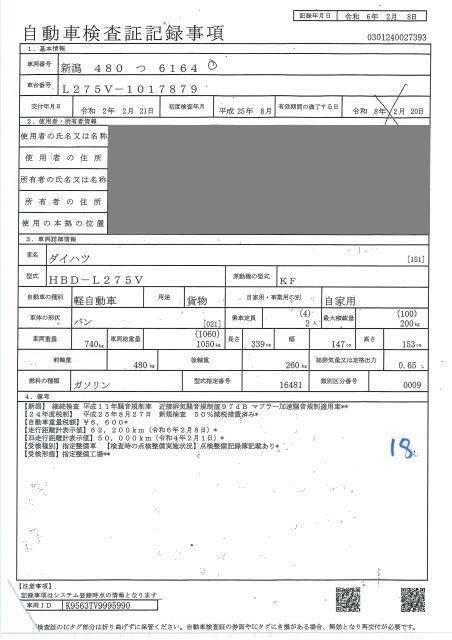 記録年月日 令和 6年 2月 8日
自動車検査証記録事項
0301240027393
1. 基本情報
車両番号 新潟 480 つ 6164 ①
車台番号 L275V-1017879
交付年月日 令和 2年 2月 21日 初度検査年月 平成 25年 8月 有効期間の満了する日 令和 8年 2月 20日
2. 使用者・所有者情報
使用者の氏名又は名称
使用者の住所
所有者の氏名又は名称
所有者の住所
使用の本拠の位置
3. 車両詳細情報
車名 ダイハツ [151]
型式 HBD-L275V 原動機の型式 KF
自動車の種別 軽自動車 用途 貨物 自家用・事業用の別 自家用
車体の形状 バン [021] 乗車定員 (4) 2人 最大積載量 (100) 200kg
車両重量 740kg 車両総重量 (1060) 1050kg 長さ 339cm 幅 147cm 高さ 153cm
前軸重 480kg 後軸重 260kg 総排気量又は定格出力 0.65 L
燃料の種類 ガソリン 型式指定番号 16481 類別区分番号 0009
4. 備考
【新潟】 継続検査 平成11年騒音規制車 近接排気騒音規制値97dB マフラー加速騒音規制適用車**
【24年度税制】 平成25年8月27日 新規検査 50%減税措置済み*
【自動車重量税額】 ¥6,600*
【走行距離計表示値】 62,200km (令和6年2月8日)*
【旧走行距離計表示値】 50,000km (令和4年2月1日)*
【受検種別】指定整備車 【検査時の点検整備実施状況】点検整備記録簿記載あり*
【受検形態】指定整備工場**
18
【注意事項】
記録事項はシステム登録時点の情報となります
車両ID K9563TV9995990
検査証のICタグ部分は折り曲げずに保管ください。自動車検査証の券面やICタグにき損がある場合、無効となり再交付が必要です。